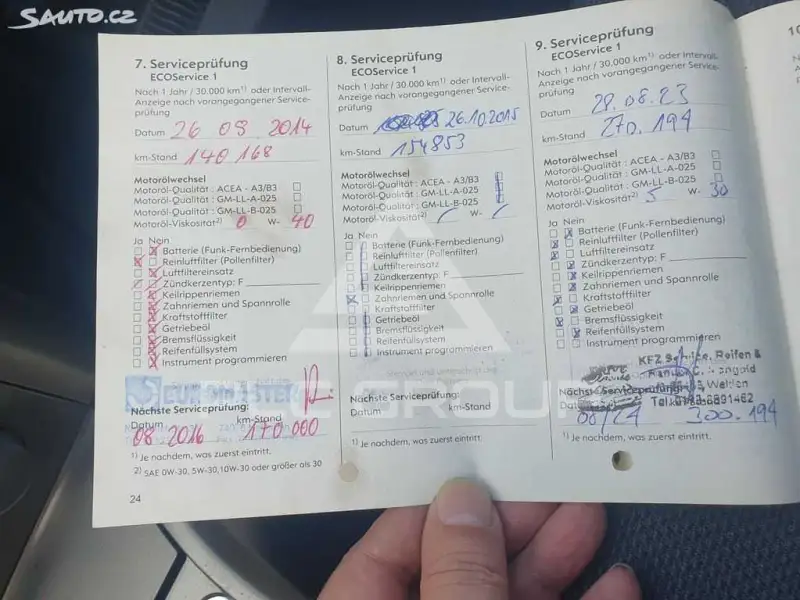 SAUTO.CZ
7. Serviceprüfung
ECOService 1
Nach 1 Jahr / 30.000 km¹⁾ oder Intervall-
Anzeige nach vorangegangener Service-
prüfung
Datum 26 08 2014
km-Stand 140 168
Motorölwechsel
Motoröl-Qualität : ACEA - A3/B3
Motoröl-Qualität : GM-LL-A-025
Motoröl-Qualität : GM-LL-B-025
Motoröl-Viskosität²⁾ 0 W- 40
Ja Nein
Batterie (Funk-Fernbedienung)
Reinluftfilter (Pollenfilter)
Luftfiltereinsatz
Zündkerzentyp: F
Keilrippenriemen
Zahnriemen und Spannrolle
Kraftstofffilter
Getriebeöl
Bremsflüssigkeit
Reifenfüllsystem
Instrument programmieren
Nächste Serviceprüfung:
Datum km-Stand
08 2016 170 000
¹⁾ Je nachdem, was zuerst eintritt.
²⁾ SAE 0W-30, 5W-30, 10W-30 oder größer als 30
24
8. Serviceprüfung
ECOService 1
Nach 1 Jahr / 30.000 km¹⁾ oder Intervall-
Anzeige nach vorangegangener Service-
prüfung
Datum 26.10.2015
km-Stand 154853
Motorölwechsel
Motoröl-Qualität : ACEA - A3/B3
Motoröl-Qualität : GM-LL-A-025
Motoröl-Qualität : GM-LL-B-025
Motoröl-Viskosität²⁾ W-
Ja Nein
Batterie (Funk-Fernbedienung)
Reinluftfilter (Pollenfilter)
Luftfiltereinsatz
Zündkerzentyp: F
Keilrippenriemen
Zahnriemen und Spannrolle
Kraftstofffilter
Getriebeöl
Bremsflüssigkeit
Reifenfüllsystem
Instrument programmieren
Nächste Serviceprüfung:
Datum km-Stand
¹⁾ Je nachdem, was zuerst eintritt.
9. Serviceprüfung
ECOService 1
Nach 1 Jahr / 30.000 km¹⁾ oder Intervall-
Anzeige nach vorangegangener Service-
prüfung
Datum 28.08.23
km-Stand 270.194
Motorölwechsel
Motoröl-Qualität : ACEA - A3/B3
Motoröl-Qualität : GM-LL-A-025
Motoröl-Qualität : GM-LL-B-025
Motoröl-Viskosität²⁾ 5 W- 30
Ja Nein
Batterie (Funk-Fernbedienung)
Reinluftfilter (Pollenfilter)
Luftfiltereinsatz
Zündkerzentyp: F
Keilrippenriemen
Zahnriemen und Spannrolle
Kraftstofffilter
Getriebeöl
Bremsflüssigkeit
Reifenfüllsystem
Instrument programmieren
KFZ Reifen &
Nächste Serviceprüfung
08/24 300.194
¹⁾ Je nachdem, was zuerst eintritt.
GROUP